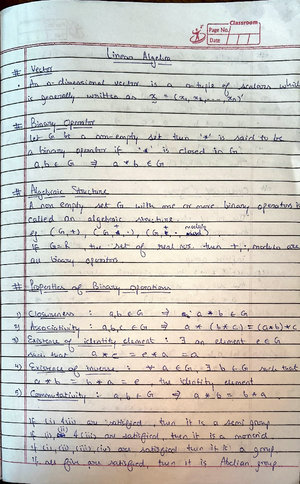 Classroom
Page No.
Date
Linear Algebra
# Vector
• An n-dimensional vector is a n-tuple of scalars which
is generally written as x = (x₁, x₂, ..., xₙ)'
# Binary Operator
Let G be a non-empty set then '*' is said to be
a binary operator if '*' is closed in G.
a, b ∈ G ⇒ a * b ∈ G
# Algebraic Structure
A non empty set G with one or more binary operators is
called an algebraic structure.
eg. (G, +)
If G = R, the set of real nos. then +, · modulo are
all binary operators.
# Properties of Binary Operations
1) Closureness : a, b ∈ G ⇒ a * b ∈ G
2) Associativity : a, b, c ∈ G ⇒ a * (b * c) = (a * b) * c
3) Existence of identity element : ∃ an element e ∈ G
such that a * e = e * a = a
4) Existence of Inverse : ∀ a ∈ G, ∃ b ∈ G such that
a * b = b * a = e, the identity element
5) Commutativity : a, b ∈ G ⇒ a * b = b * a.
If (i) & (ii) are satisfied, then it is a semi group
If (i), (ii) & (iii) are satisfied, then it is a monoid
If (i), (ii), (iii), (iv) are satisfied then it is a group.
If all five are satisfied, then it is Abelian group